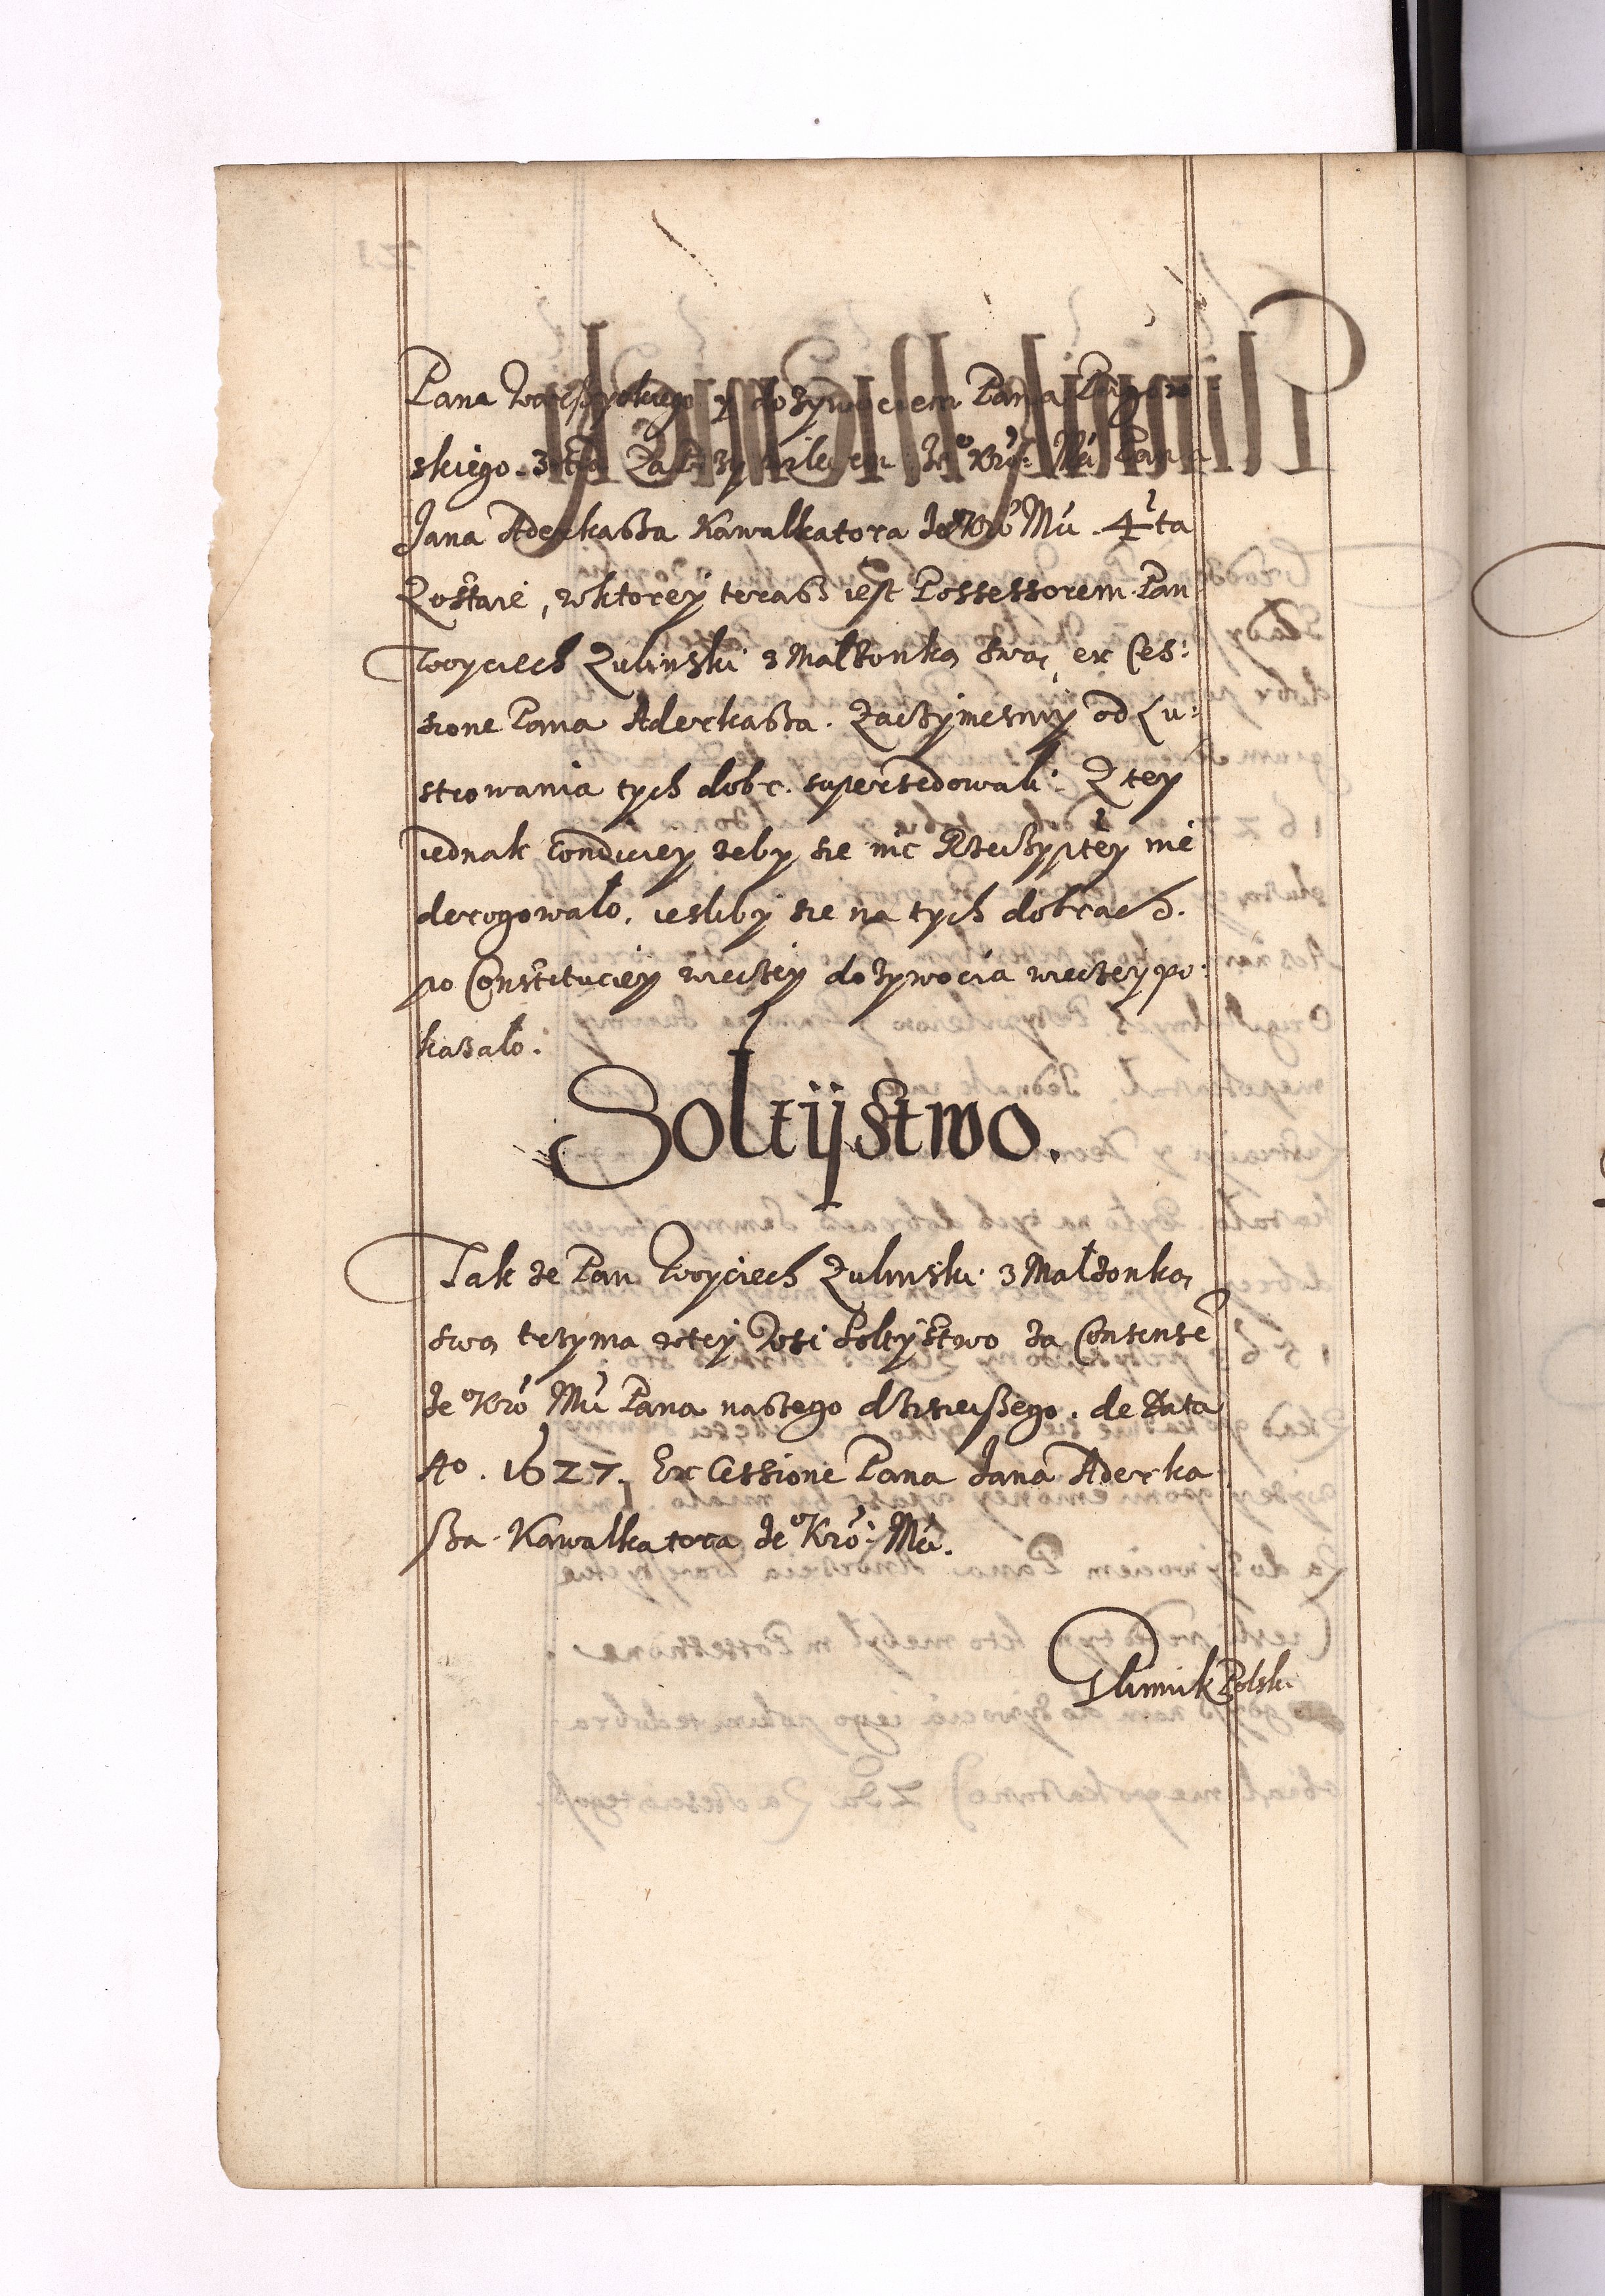 Pana y dozywociem Pana
skiego. 3tia Za Przywileiem Je° Kró: Mci Pana
Jana Aderkasza Kawalkatora Je° Kró Mci. 4ta
Zostaie, wktorey terasz iest Possessorem Pan
Woyciech Zulinski z Malzonką swą, ex Ces:
sione Pana Aderkasza. Zaczymesmy od Lu:
strowania tych dobr. supersedowali: Z tey
iednak Condiciey zeby sie nic Rzeczyptey nie
derogowało, iesliby sie na tych dobrach.
po Constituciey wieczey dozywocia wieczey po:
kazało.
Soltijstwo.
Tak ze Pan Woyciech Zulinski z Malzonką
swą trzyma wtey Wsi Soltystwo za Consense
Je° Kró Mci Pana naszego dzisieyszego. de Data
A°. 1627. Ex Cessione Pana Jana Aderka
sza Kawalkatora Je° Kró: Mci.
Plimnik Polski